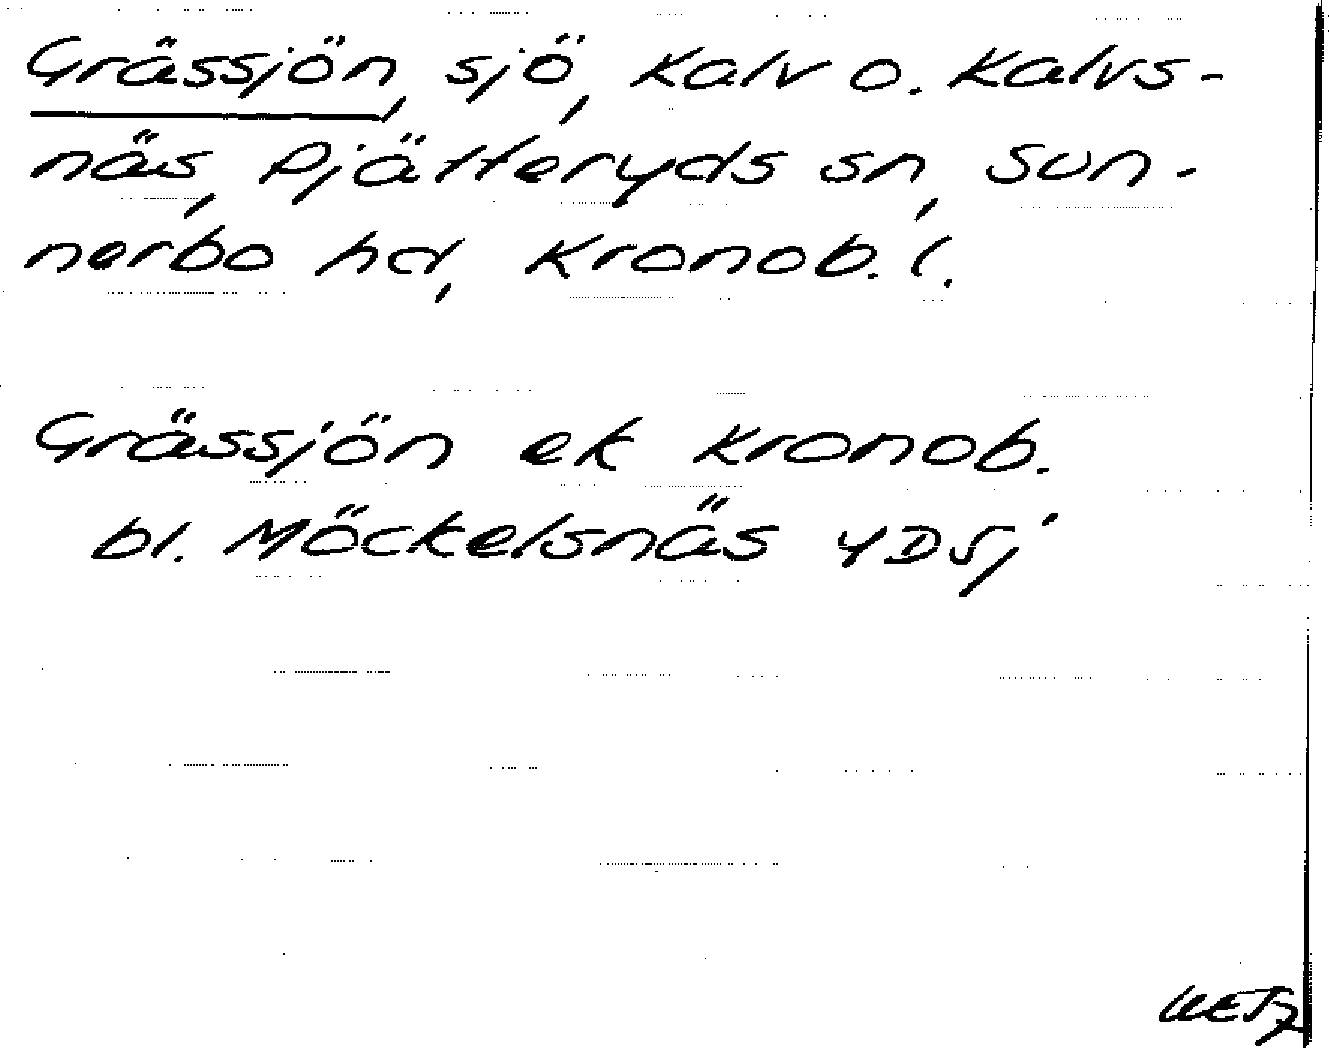 Grässjön, sjö, Kalv o. Kalvs-
näs, Pjätteryds sn, Sun-
nerbo hd, Kronob. l.
Grässjön ek Kronob.
bl. Möckelsnäs 4D5j